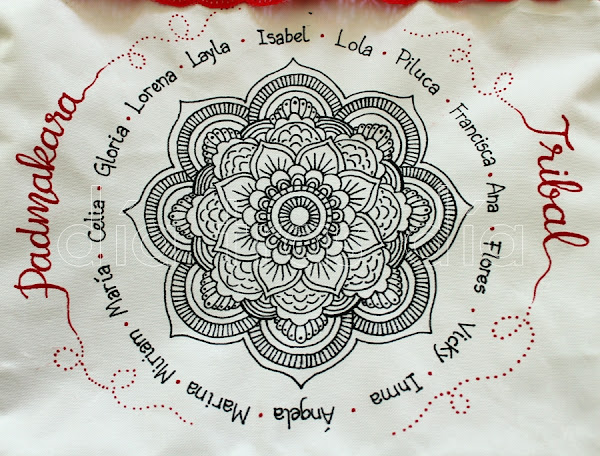 Padmakara
Tribal
Isabel · Lola · Piluca · Francisca · Ana · Flores · Vicky · Inma · Ángela · Marina · Miriam · María · Celia · Gloria · Lorena · Layla